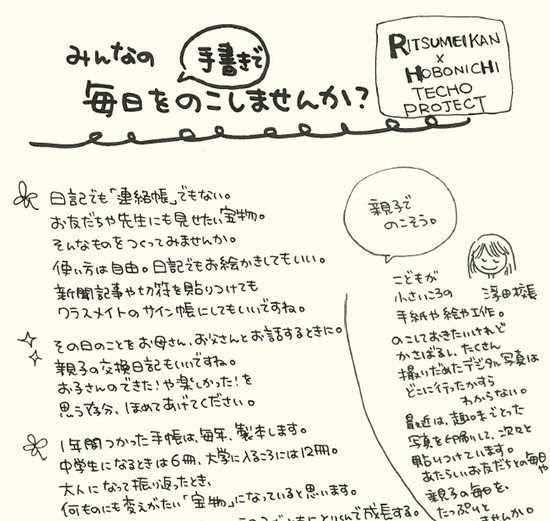 みんなの 手書きで
毎日をのこしませんか?
RITSUMEIKAN
×
HOBONICHI
TECHO
PROJECT
日記でも「連絡帳」でもない。
お友だちや先生にも見せたい宝物。
そんなものをつくってみませんか。
使い方は自由。日記でもお絵かきしてもいい。
新聞記事や切符を貼りつけても
クラスメイトのサイン帳にしてもいいですね。
その日のことをお母さん、お父さんとお話するときに。
親子の交換日記もいいですね。
お子さんのできた!や楽しかった!を
思う存分、ほめてあげてください。
1年間つかった手帳は、毎年、製本します。
中学生になるときは6冊、大学に入るころには12冊。
大人になって振り返ったとき、
何ものにも変えがたい「宝物」になっていると思います。
親子で
のこそう。
深田校長
こどもが
小さいころの
手紙や絵や工作。
のこしておきたいけれど
かさばるし、たくさん
撮りだめたデジタル写真は
どこに行ったかすら
わからない。
最近は、趣味でとった
写真を印刷して、次々と
貼りつけています。
あたらしいお友だちとの毎日や
親子の毎日を、
たっぷりと
ませんか。